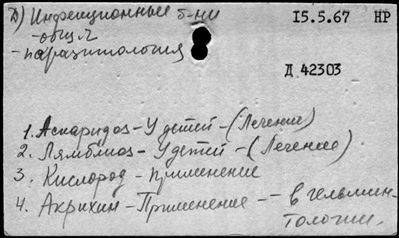 Д) Инфекционные б-ни 15.5.67 НР
-общ.ч
-паразитология
Д 42303
1. Аскаридоз - У детей - (Лечение)
2. Лямблиоз - У детей - (Лечение)
3. Кислород - Применение
4. Акрихин - Применение -- в гельмин-
тологии.